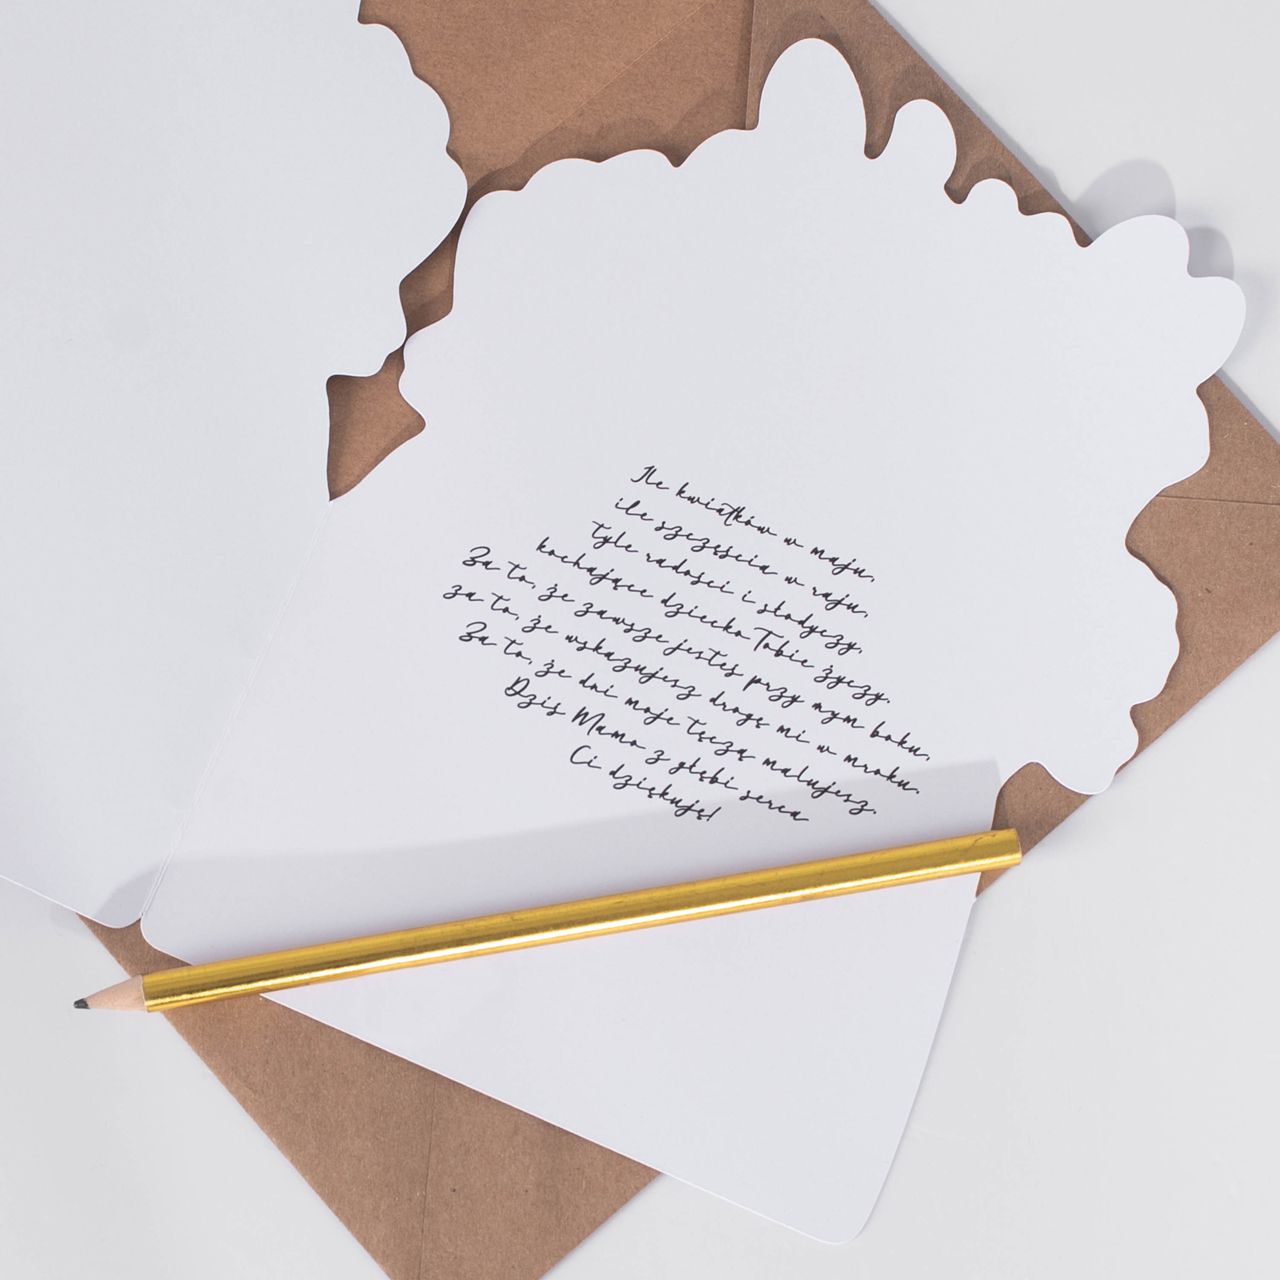 Ile kwiatków w maju,
ile szczęścia w raju,
tyle radości i słodyczy,
kochające dziecko Tobie życzy.
Za to, że zawsze jesteś przy mym boku,
za to, że wskazujesz drogę mi w mroku.
Za to, że dni moje tęczą malujesz.
Dziś Mamo z głębi serca
Ci dziękuję!